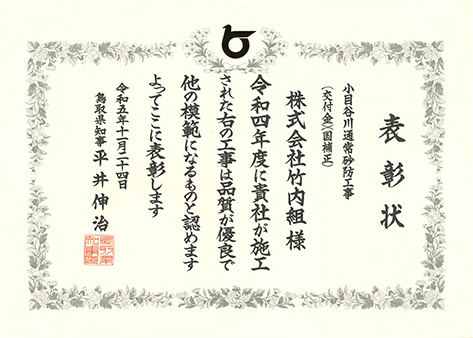 表彰状
小目谷川通常砂防工事
(交付金)(国補正)
株式会社竹内組 様
令和四年度に貴社が施工
された右の工事は品質が優良で
他の模範になるものと認めます
よってここに表彰します
令和五年十一月二十四日
鳥取県知事 平井伸治